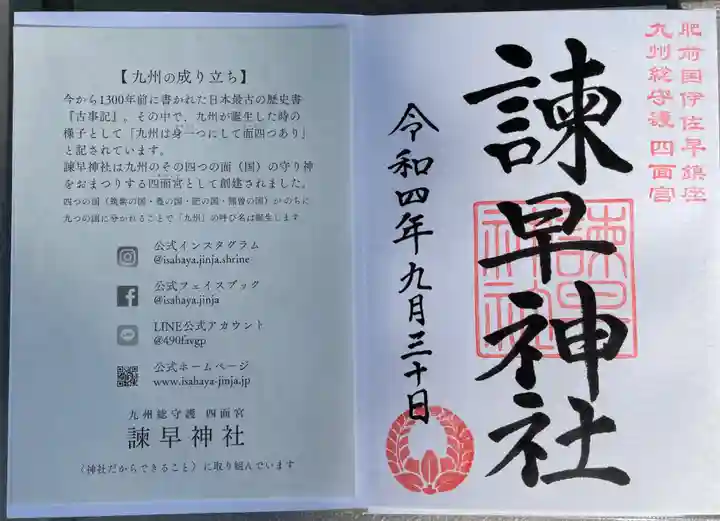 【九州の成り立ち】
今から1300年前に書かれた日本最古の歴史書
『古事記』。その中で、九州が誕生した時の
様子として「九州は身一つにして面四つあり」
と記されています。
諫早神社は九州のその四つの面（国）の守り神
をおまつりする四面宮として創建されました。
四つの国（筑紫の国・豊の国・肥の国・熊曽の国）がのちに
九つの国に分かれることで「九州」の呼び名は誕生します
公式インスタグラム
@isahaya.jinja.shrine
公式フェイスブック
@isahaya.jinja
LINE公式アカウント
@490favgp
公式ホームページ
www.isahaya-jinja.jp
九州総守護 四面宮
諫早神社
〈神社だからできること〉に取り組んでいます
肥前国伊佐早鎮座
九州総守護 四面宮
諫早神社
諫早神社
令和四年九月三十日